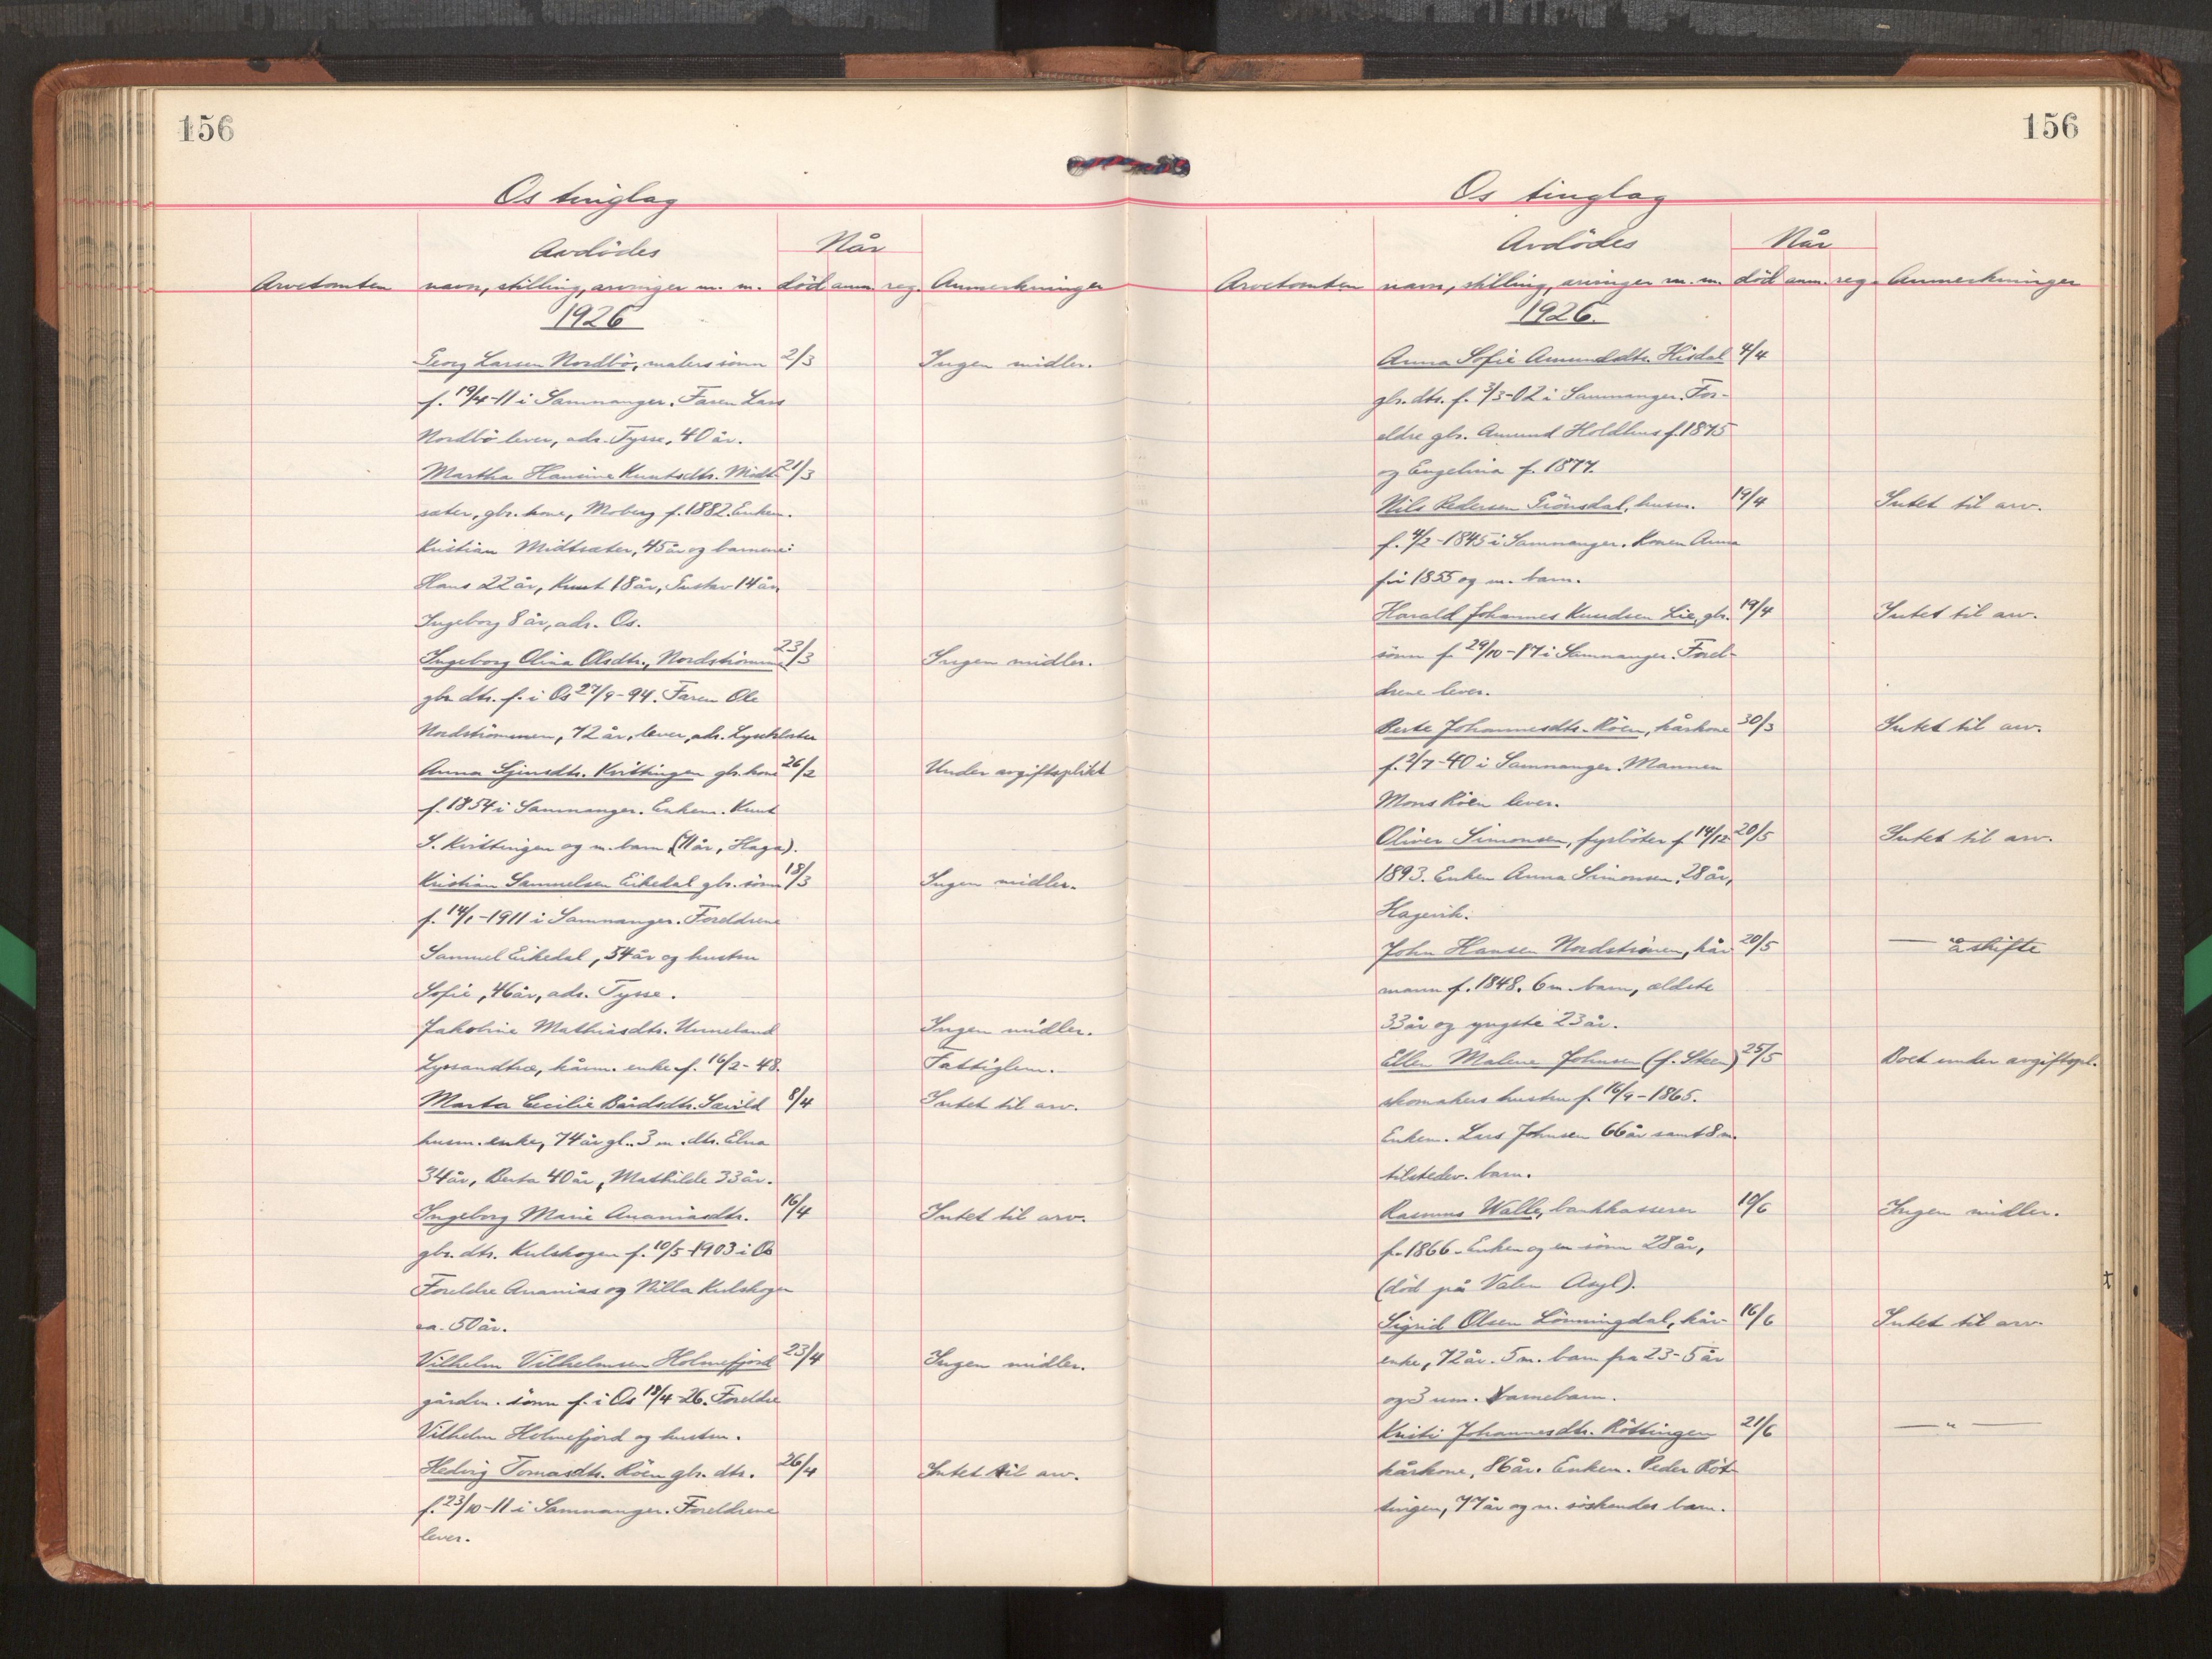 156
Os tinglag
Avdödes
Når
Arvetomten navn, stilling, arvinger m. m. död anm. reg. Anmerkninger
1926
Georg Larsen Nordbö, malers sönn 2/3 Ingen midler.
f. 19/4-11 i Samnanger. Faren Lars
Nordbö lever, adr. Tysse, 40 år.
Martha Hansine Knutsdtr. Midt- 21/3
sæter, gbr. kone, Moberg f. 1882. Enkem.
Kristian Midtsæter, 45 år og barnene:
Hans 22 år, Knut 18 år, Gustav 14 år,
Ingeborg 8 år, adr. Os.
Ingeborg Olina Olsdtr., Nordströmme 23/3 Ingen midler.
gbr. dtr. f. i Os 27/9-94. Faren Ole
Nordströmmen, 72 år, lever, adr. Lysekloster
Anna Gjensdtr. Kvittingen gbr. kone 26/2 Under avgiftsplikt
f. 1854 i Samnanger. Enkem. Knut
S. Kvittingen og m. barn (11 år, Haga).
Kristian Samuelsen Eikedal gbr. sönn 18/3 Ingen midler.
f. 14/1-1911 i Samnanger. Foreldrene
Samuel Eikedal, 54 år og hustru
Sofie, 46 år, adr. Tysse.
Jakobine Mathiasdtr. Unneland Ingen midler.
Lyssandtræ, kårm. enke f. 16/2-48. Fattiglem.
Marta Cecilie Bårdsdtr. Sævild 8/4 Intet til arv.
husm. enke, 74 år gl. 3 m. dtr. Elna
34 år, Berta 40 år, Mathilde 33 år.
Ingeborg Marie Ananiasdtr. 16/4 Intet til arv.
gbr. dtr. Kulskogen f. 10/5-1903 i Os
Foreldre Ananias og Nilla Kulskogen
ca. 50 år.
Vilhelm Vilhelmsen Holmefjord 23/4 Ingen midler.
gårdm. sönn f. i Os 18/4-26. Foreldre
Vilhelm Holmefjord og hustru.
Hedvig Tomasdtr. Röen gbr. dtr. 26/4 Intet til arv.
f. 23/10-11 i Samnanger. Foreldrene
lever.
156
Os tinglag
Avdödes
Når
Arvetomten navn, stilling, arvinger m. m. död anm. reg. Anmerkninger
1926.
Anna Sofie Amundsdtr. Hisdal 4/4
gbr. dtr. f. 3/3-02 i Samnanger. For-
eldre gbr. Amund Holdhus f. 1875
og Engelina f. 1877.
Nils Pedersen Grönsdal, husm. 19/4 Intet til arv.
f. 4/2-1845 i Samnanger. Konen Anna
f. 1855 og m. barn.
Harald Johannes Knudsen Lie, gbr. 19/4 Intet til arv.
sönn f. 29/10-17 i Samnanger. Forel-
drene lever.
Berte Johannesdtr. Röen, kårkone 30/3 Intet til arv.
f. 2/7-40 i Samnanger. Mannen
Mons Röen lever.
Oliver Simonsen, fyrböter f. 14/12 20/5 Intet til arv.
1893. Enken Anna Simonsen, 28 år,
Hagevik.
John Hansen Nordströnen, kår- 20/5 — å skifte
mann f. 1848. 6 m. barn, eldste
33 år og yngste 23 år.
Ellen Malene Johnsen (f. Steen) 25/5 Boet under avgiftspl.
skomakers hustru f. 16/9-1865.
Enkem. Lars Johnsen 66 år samt 8 m.
tilstedev. barn.
Rasmus Walle, bankkasserer 10/6 Ingen midler.
f. 1866. Enken og en sönn 28 år,
(död på Valen Asyl).
Sigrid Olsen Lönningdal, kår- 16/6 Intet til arv.
enke, 72 år. 5 m. barn fra 23-5 år
og 3 um. barnebarn.
Kristi Johannesdtr. Röttingen 21/6 — " —
kårkone, 86 år. Enkem. Peder Röt-
tingen, 77 år og m. söskendes barn.